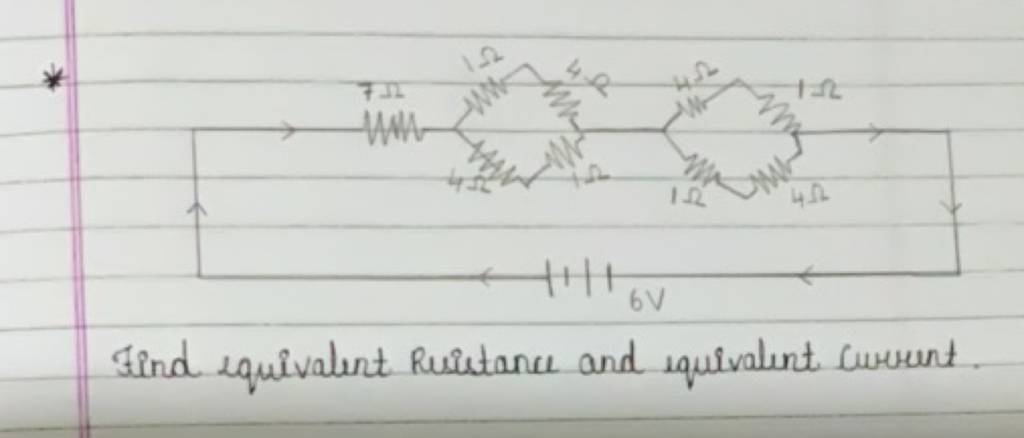 *
1Ω 4Ω 4Ω 1Ω
7Ω
4Ω 1Ω 1Ω 4Ω
6V
Find equivalent Resistance and equivalent Current.